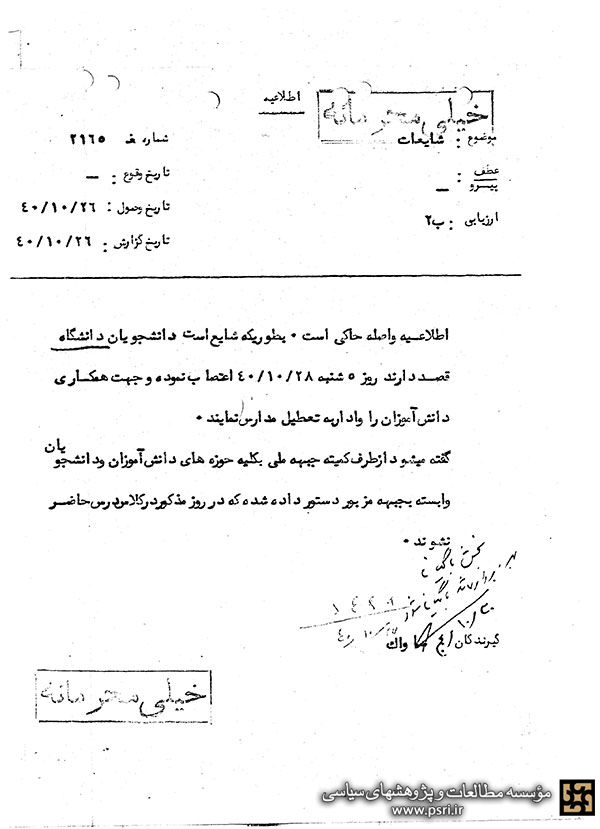 اطلاعیه
خیلی محرمانه
موضوع : شایعات
شماره ف ۲۱۶۵
عطف
پیرو : —
تاریخ وقوع : —
تاریخ وصول : ۴۰/۱۰/۲۶
ارزیابی : ب۲
تاریخ گزارش : ۴۰/۱۰/۲۶
اطلاعیه واصله حاکی است ۰ بطوریکه شایع است دانشجویان دانشگاه
قصد دارند روز ۵ شنبه ۴۰/۱۰/۲۸ اعتصاب نموده و جهت همکاری
دانش آموزان را وادار به تعطیل مدارس نمایند ۰
گفته میشود از طرف کمیته جبهه ملی بکلیه حوزه های دانش آموزان و دانشجویان
وابسته بجبهه مزبور دستور داده شده که در روز مذکور در کلاس درس حاضر
نشوند ۰
گیرندگان
خیلی محرمانه
مؤسسه مطالعات و پژوهشهای سیاسی
www.psri.ir